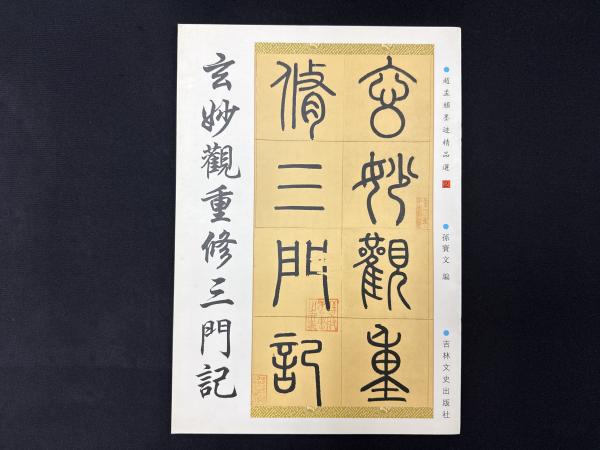 趙孟頫墨迹精品選
孫寶文 編
吉林文史出版社
玄妙觀重
脩三門記
玄妙觀重修三門記